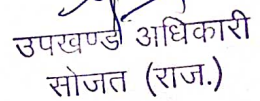 उपखण्ड अधिकारी
सोजत (राज.)